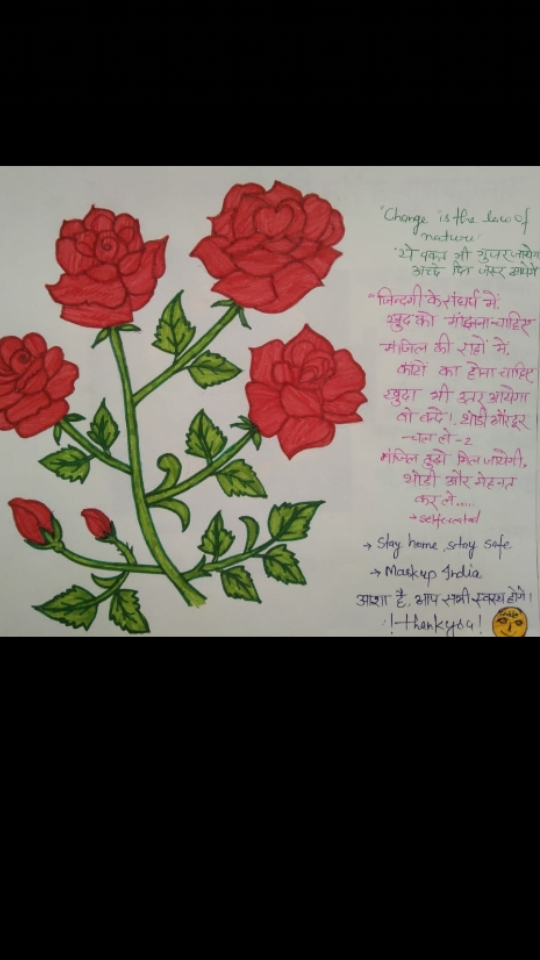 "Change is the law of
nature"
"ये वक्त भी गुजर जायेगा
अच्छे दिन जरूर आयेंगे
"जिन्दगी के संघर्ष में,
खुद को मांझना चाहिए
मंजिल की राहों में,
कांटों का होना चाहिए
खुदा भी उतर आयेगा
तो बन्दे!, थोडी ओर दूर
-चल ले -2
मंजिल तुझे मिल जायेगी,
थोडी और मेहनत
कर ले.....
→ selfcreated
→ Stay home, stay safe
→ Maskup India
आशा है, आप सभी स्वस्थ होंगे!
!-thankyou!